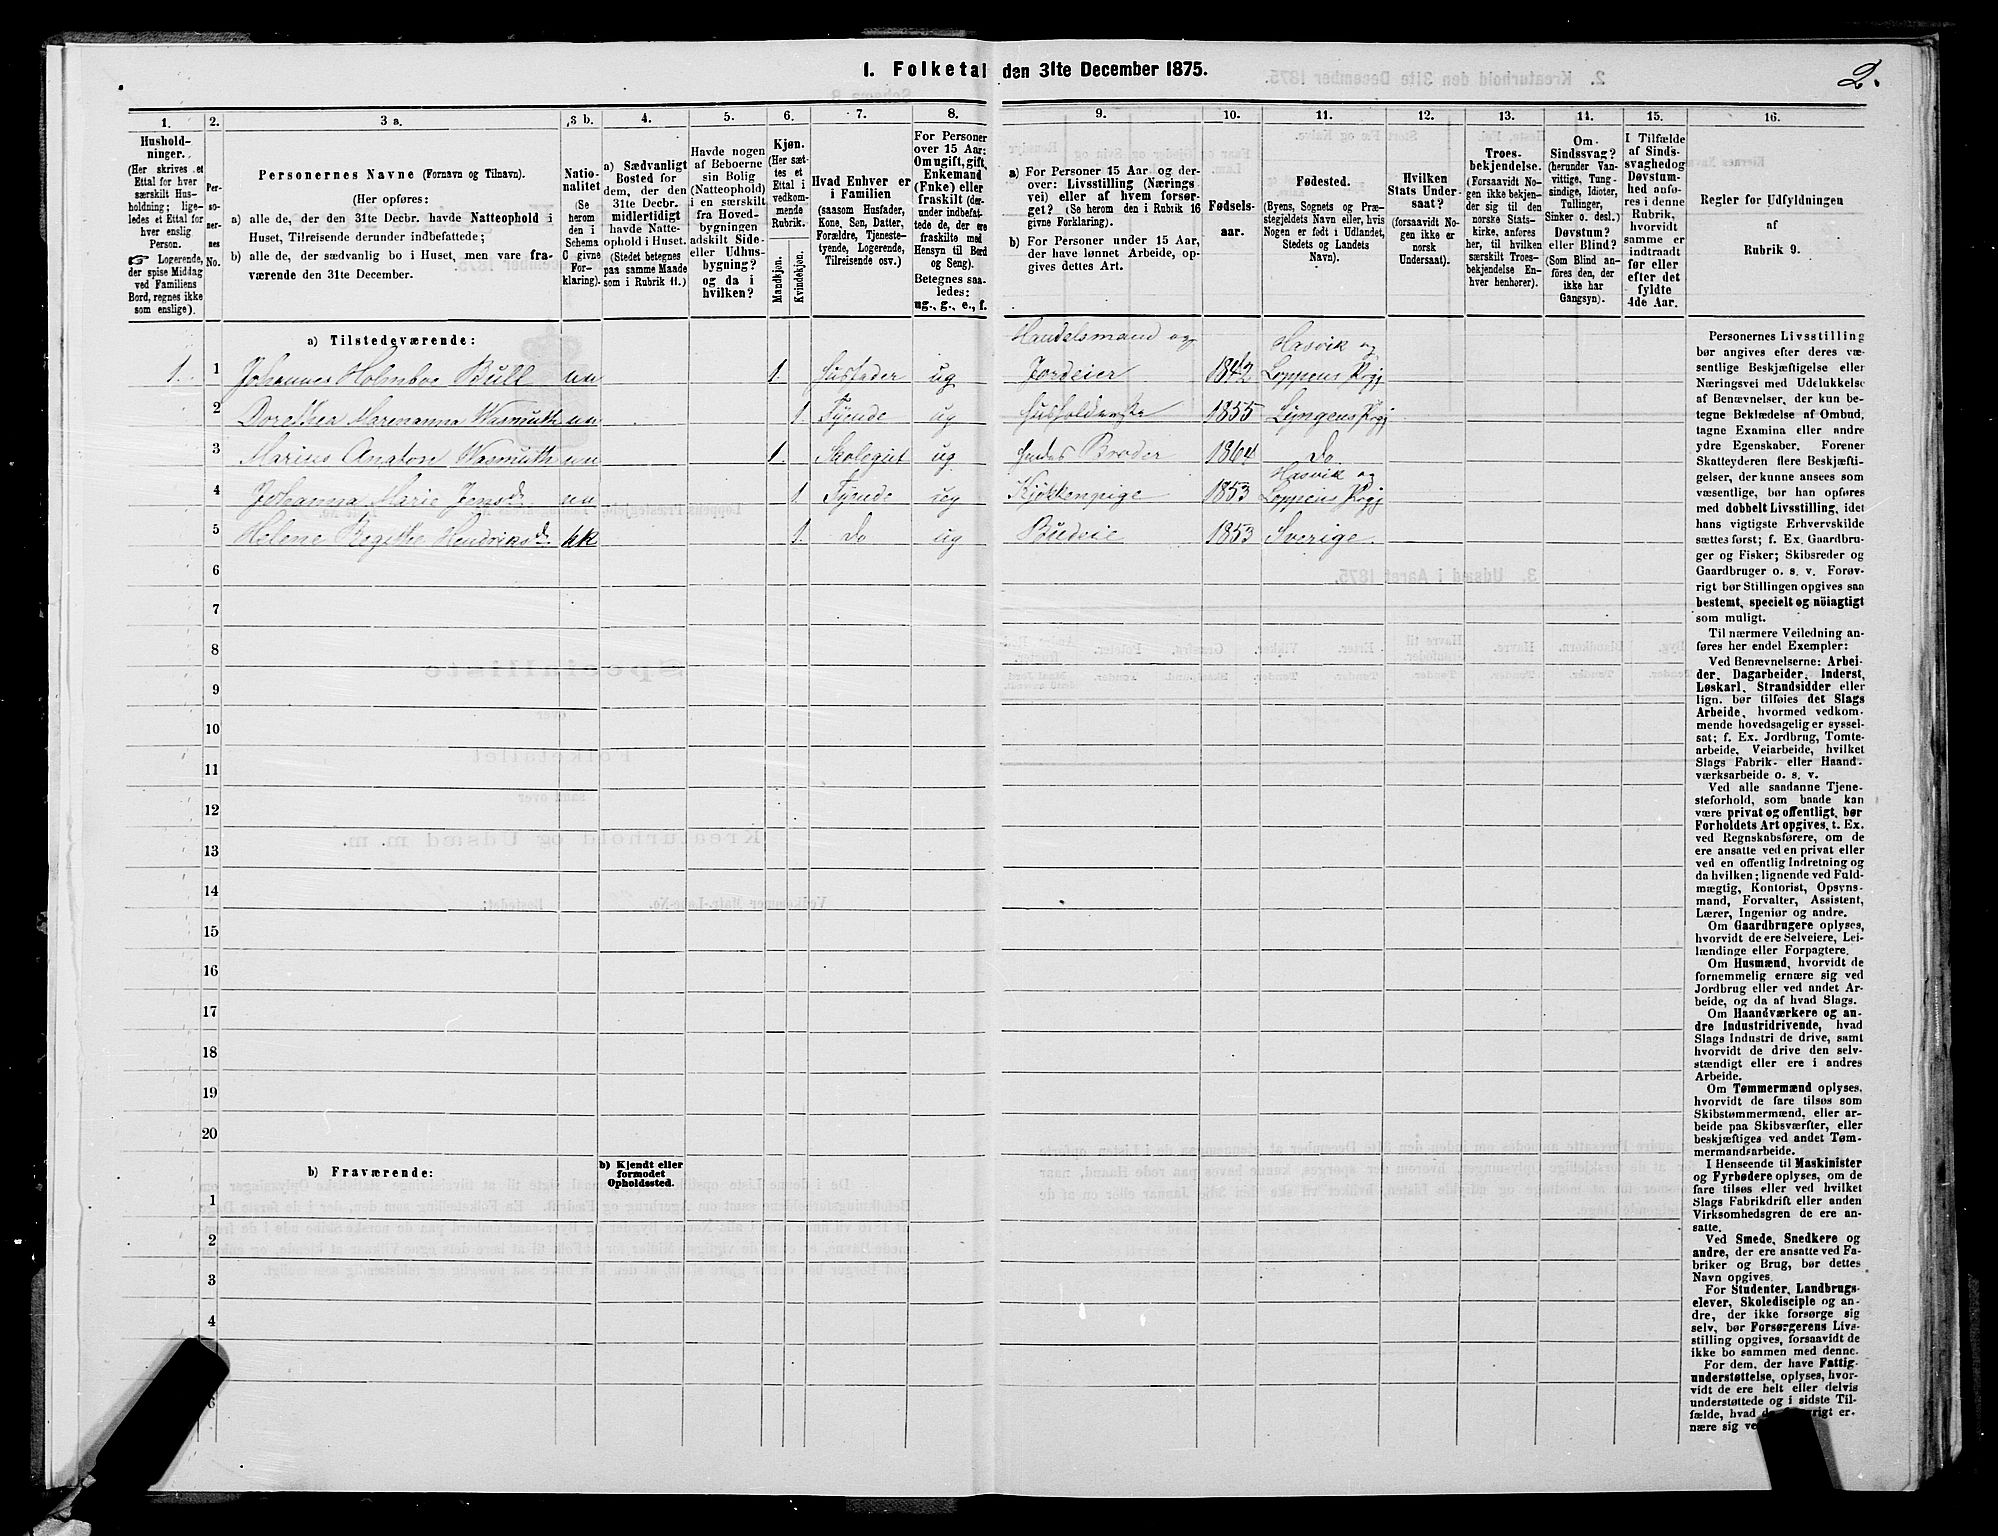 1. Folketal den 31te December 1875.
2.
1.
Hushold-
ninger.
(Her skrives et
Ettal for hver
særskilt Hus-
holdning; lige-
ledes et Ettal for
hver enslig
Person.
Logerende,
der spise Middag
ved Familiens
Bord, regnes ikke
som enslige).
2.
Per-
so-
ner-
nes
No.
3 a.
Personernes Navne (Fornavn og Tilnavn).
(Her opføres:
a) alle de, der den 31te Decbr. havde Natteophold i
Huset, Tilreisende derunder indbefattede;
b) alle de, der sædvanlig bo i Huset, men vare fra-
værende den 31te December.
3 b.
Natio-
nalitet
(Se
herom
den i
Schema
C givne
For-
klaring).
4.
a) Sædvanligt
Bosted for
dem, der den
31te Decbr.
midlertidigt
havde Natte-
ophold i Huset.
(Stedet betegnes
paa samme Maade
som i Rubrik 11.)
5.
Havde nogen
af Beboerne
sin Bolig
(Natteophold)
i en særskilt
fra Hoved-
bygningen
adskilt Side-
eller Udhus-
bygning?
og da i
hvilken?
6.
Kjøn.
(Her sæt-
tes et
Ettal i
vedkom-
mende
Rubrik.
Mandkjøn.
Kvindekjøn.
7.
Hvad Enhver er
i Familien
(saasom Husfader,
Kone, Søn, Datter,
Forældre, Tjeneste-
tyende, Logerende,
Tilreisende osv.)
8.
For Personer
over 15 Aar:
Om ugift, gift,
Enkemand
(Enke) eller
fraskilt (der-
under indbefat-
tede de, der ere
fraskilte med
Hensyn til Bord
og Seng).
Betegnes saa-
ledes:
ug., g., e., f.
9.
a) For Personer 15 Aar og der-
over: Livsstilling (Nærings-
vei) eller af hvem forsør-
get? (Se herom den i Rubrik 16
givne Forklaring).
b) For Personer under 15 Aar,
der have lønnet Arbeide, op-
gives dettes Art.
10.
Fødsels-
aar.
11.
Fødested.
(Byens, Sognets og Præ-
stegjeldets Navn eller, hvis
Nogen er født i Udlandet,
Stedets og Landets
Navn).
12.
Hvilken
Stats Under-
saat?
(forsaavidt No-
gen ikke er
norsk
Undersaat).
13.
Troes-
bekjendelse.
(Forsaavidt No-
gen ikke bekjen-
der sig til den
norske Stats-
kirke, anføres
her, til hvilken
særskilt Troes-
bekjendelse En-
hver henhører).
14.
Om
Sindssvag?
(herunder Van-
vittige, Tung-
sindige, Idioter,
Tullinger,
Sinker o. desl.)
Døvstum?
eller Blind?
(Som Blind an-
føres den, der
ikke har
Gangsyn).
15.
I Tilfælde
af Sinds-
svaghed og
Døvstum-
hed anfø-
res i denne
Rubrik,
hvorvidt
samme er
indtraadt
før eller
efter det
fyldte
4de Aar.
16.
Regler for Udfyldningen
af
Rubrik 9.
a) Tilstedeværende:
1. 1 Johannes Holmboe Bull nn 1. Husfader ug Handelsmand og Jordeier 1842 Hasvik og Loppens Prgj
2 Dorethea Marenanna Wasmuth nn 1. Tyende ug Husholderske 1855 Lyngens Prgj
3 Marius Anaton Wasmuth nn 1. Skolegut ug Hendes Broder 1864 Do
4 Johanna Marie Jensd. nn 1 Tyende ug Kjøkkenpige 1853 Hasvik og Loppens Prgj
5 Helene Regithe Hendriksd. kk 1. Do ug Budeie 1853 Sverige.
6
7
8
9
10
11
12
13
14
15
16
17
18
19
20
b) Fraværende:
b) Kjendt eller
formodet
Opholdssted.
1
2
3
4
6
Personernes Livsstilling
bør angives efter deres væ-
sentlige Beskjæftigelse eller
Næringsvei med Udelukkelse
af Benævnelser, der kun be-
tegne Beklædelse af Ombud,
tagne Examina eller andre
ydre Egenskaber. Forener
Skatteyderen flere Beskjæfti-
gelser, der kunne ansees som
væsentlige, bør han opføres
med dobbelt Livsstilling, idet
hans vigtigste Erhvervskilde
sættes først; f. Ex. Gaardbru-
ger og Fisker; Skibsreder og
Gaardbruger o. s. v. Forøv-
rigt bør Stillingen opgives saa
bestemt, specielt og nöiagtigt
som muligt.
Til nærmere Veiledning an-
føres her endel Exempler:
Ved Benævnelserne: Arbei-
der, Dagarbeider, Inderst,
Løskarl, Strandsidder eller
lign. bør tilføies det Slags
Arbeide, hvormed vedkom-
mende hovedsagelig er syssel-
sat; f. Ex. Jordbrug, Tomte-
arbeide, Veiarbeide, hvilket
Slags Fabrik- eller Haand-
værksarbeide o. s. v.
Ved alle saadanne Tjene-
steforhold, som baade kan
være privat og offentligt, bør
Forholdets Art opgives, t. Ex.
ved Regnskabsførere, om de
ere ansatte ved en privat eller
ved en offentlig Indretning og
da hvilken; lignende ved Fuld-
mægtig, Kontorist, Opsyns-
mand, Forvalter, Assistent,
Lærer, Ingeniør og andre.
Om Gaardbrugere oplyses,
hvorvidt de ere Selveiere, Lei-
lændinge eller Forpagtere.
Om Husmænd, hvorvidt de
fornemmelig ernære sig ved
Jordbrug eller ved andet Ar-
beide, og da af hvad Slags.
Om Haandværkere og an-
dre Industridrivende, hvad
Slags Industri de drive, samt
hvorvidt de drive den selv-
stændigt eller ere i andres
Arbeide.
Om Tømmermænd oplyses,
hvorvidt de fare tilsøs som
Skibstømmermænd, eller ar-
beide paa Skibsværfter, eller
beskjæftiges ved andet Tøm-
mermandsarbeide.
I Henseende til Maskinister
og Fyrbødere oplyses, om de
fare tilsøs eller ved hvilket
Slags Fabrikdrift eller anden
Virksomhedsgren de ere an-
satte.
Ved Smede, Snedkere og
andre, der ere ansatte ved Fa-
briker og Brug, bør dettes
Navn opgives.
For Studenter, Landbrugs-
elever, Skoledisciple og an-
dre, der ikke forsørge sig
selv, bør Forsørgerens Livs-
stilling opgives, forsaavidt de
ikke bo sammen med denne.
For dem, der have Fattig-
understøttelse, oplyses, hvor-
vidt de ere helt eller delvis
understøttede og i sidste Til-
fælde, hvad
nære sig